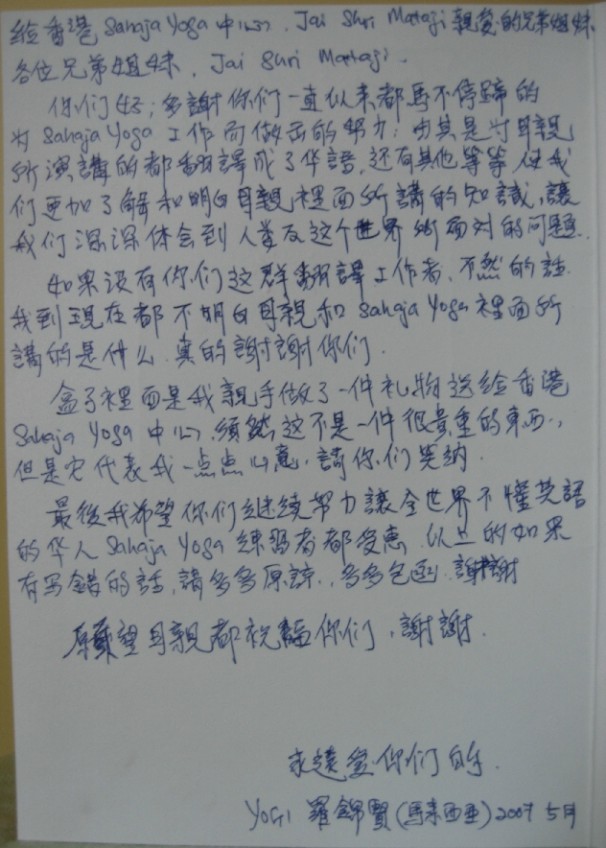 给香港 Sahaja Yoga 中心, Jai Shri Mataji 親愛的兄弟姐妹
各位兄弟姐妹, Jai Shri Mataji.
你们好; 多謝你们一直以来都馬不停蹄的
为 Sahaja Yoga 工作而做出的努力; 由其是为母親
所演講的都翻譯成了华語, 还有其他等等使我
们更加了解和明白母親裡面所講的知識, 讓
我们深深体会到人类及这个世界所面对的问题.
如果没有你们这群翻譯工作者, 不然的話.
我到現在都不明白母親和 Sahaja Yoga 裡面所
講的是什么. 真的謝謝你们.
盒子裡面是我親手做了一件礼物送给香港
Sahaja Yoga 中心, 雖然这不是一件很贵重的東西,
但是它代表我一点点心意, 請你们笑納.
最後我希望你们继续努力讓全世界不懂英語
的华人 Sahaja Yoga 練習者都受惠. 以上的如果
有写錯的話, 請多多原諒, 多多包函. 謝謝
願望母親都祝福你们, 謝謝.
永遠爱你们的.
YOGI 羅錦賢(馬来西亜) 2007 5月